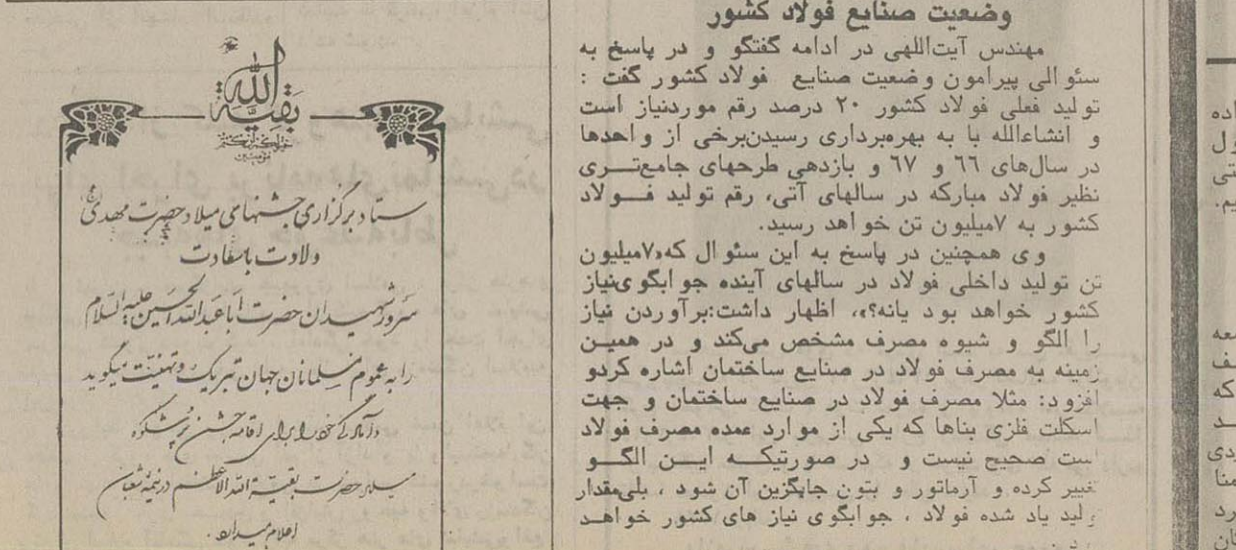 وضعیت صنایع فولاد کشور
مهندس آیت‌اللهی در ادامه گفتگو و در پاسخ به
سئوالی پیرامون وضعیت صنایع فولاد کشور گفت :
تولید فعلی فولاد کشور ۲۰ درصد رقم موردنیاز است
و انشاءالله با به بهره‌برداری رسیدن‌برخی از واحدها
در سال‌های ٦٦ و ٦٧ و بازدهی طرحهای جامع‌تری
نظیر فولاد مبارکه در سالهای آتی، رقم تولید فولاد
کشور به ۷میلیون تن خواهد رسید.
وی همچنین در پاسخ به این سئوال که«۷میلیون
تن تولید داخلی فولاد در سالهای آینده جوابگوی‌نیاز
کشور خواهد بود یانه؟»، اظهار داشت:برآوردن نیاز
را الگو و شیوه مصرف مشخص می‌کند و در همین
زمینه به مصرف فولاد در صنایع ساختمان اشاره کردو
افزود: مثلا مصرف فولاد در صنایع ساختمان و جهت
اسکلت فلزی بناها که یکی از موارد عمده مصرف فولاد
است صحیح نیست و در صورتیکه این الگو
تغییر کرده و آرماتور و بتون جایگزین آن شود ، بلی‌مقدار
ولید یاد شده فولاد ، جوابگوی نیاز های کشور خواهد
بقیة الله
ستاد برگزاری جشنهای میلاد حضرت مهدی
ولادت باسعادت
سرور شهیدان حضرت اباعبدالله الحسین علیه السلام
را به عموم مسلمانان جهان تبریک و تهنیت میگوید
و آمادگی خود را برای اقامه جشن پرشکوه
میلاد حضرت بقیة الله الاعظم در نیمه شعبان
اعلام میدارد.
اده
ول
تی
یم.
معه
ف
که
د
ردی
منا
رد
ان